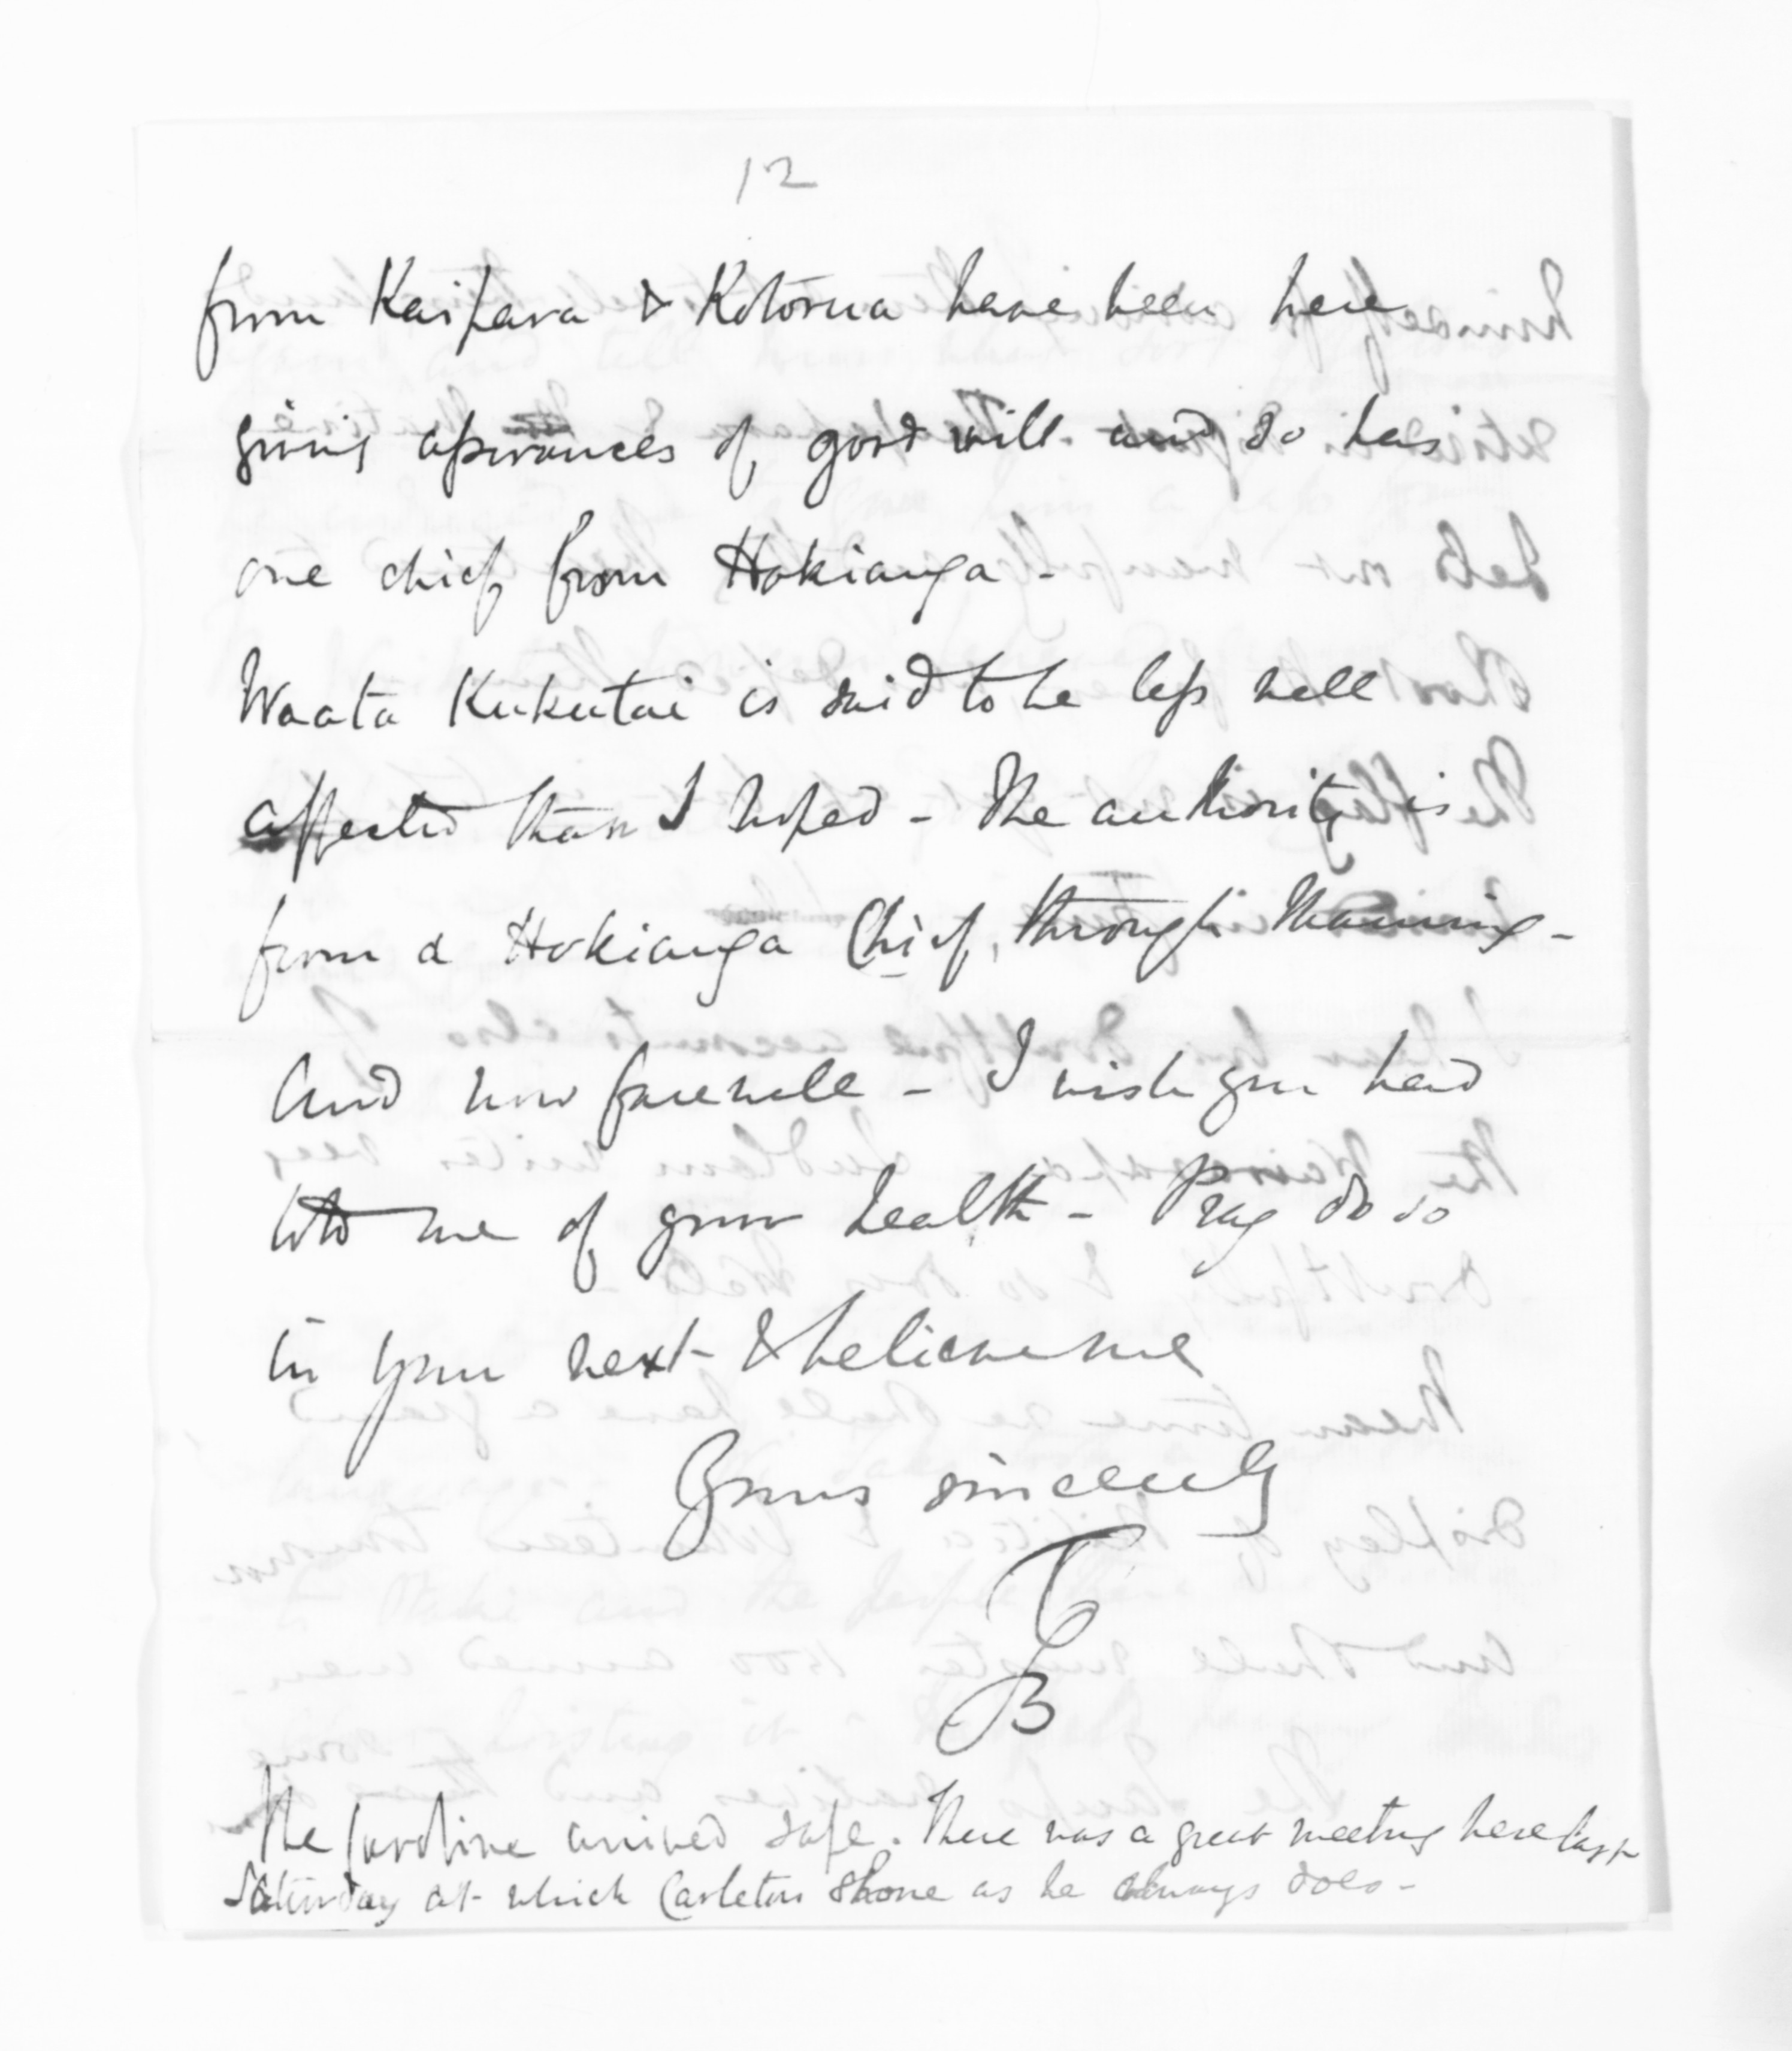 12
from Kaipara & Rotorua have been here
giving assurances of good will and so has
one chief from Hokianga -
Waata Kukutai is said to be less well
affected than I hoped - The authority is
from a Hokianga Chief, through Maning -
And now farewell - I wish you had
told me of your health - Pray do so
in your next & believe me
Yours sincerely
TGB
The Cordline arrived safe. There was a great meeting here last
Saturday at which Carleton shone as he always does -